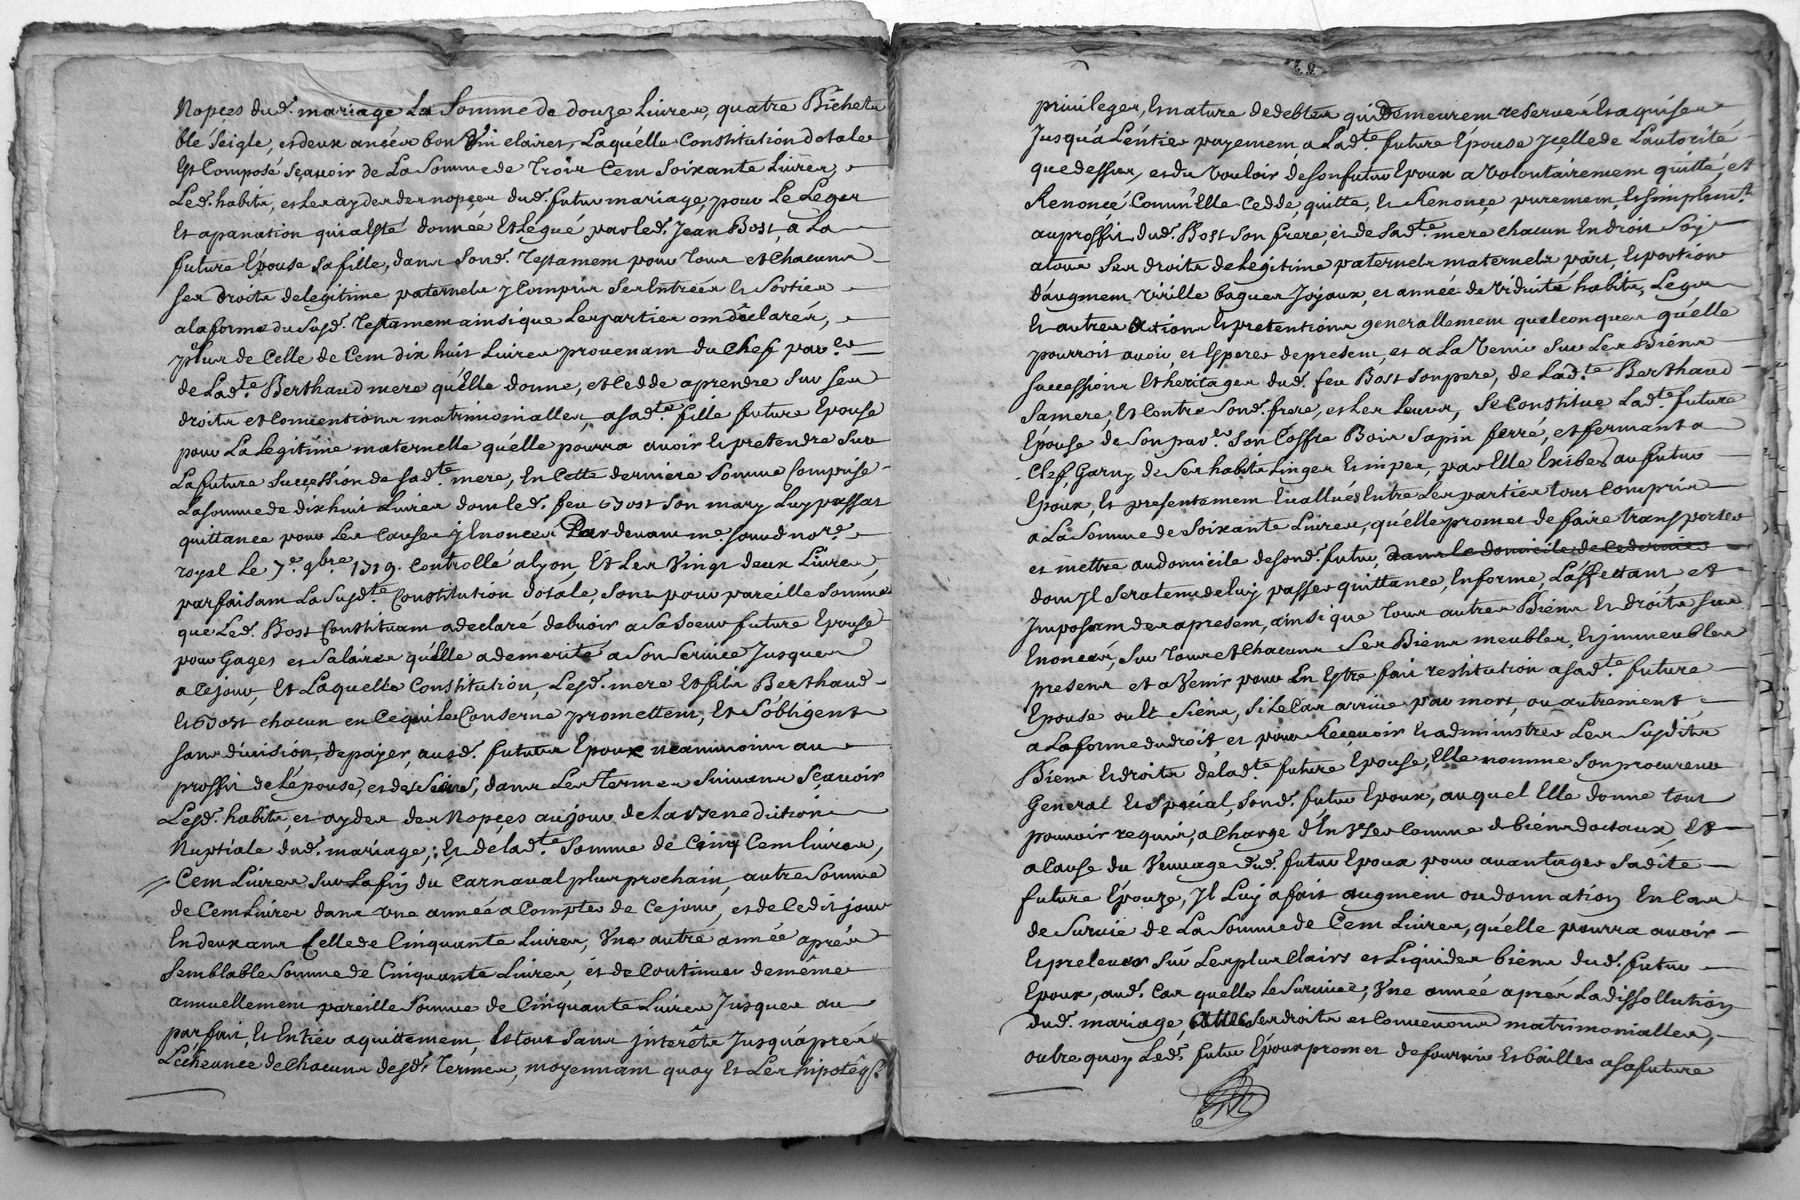 Nopces dud.t mariage La Somme de douze Livres, quatre Bichets
blé Seigle, et deux anées bon vin clairet, Laquelle Constitution dotale
Est Composé Sçavoir de La Somme de Trois Cent Soixante Livres,
Led. habits, et Les ayder des nopces dud. futur mariage, pour Le Legat
Et apanation qui a esté donnée Et Legué par led. Jean Bost, a La
future Epouse Sa fille, dans Sond. Testament pour Tous et Chacuns
Ses droits de legitime paternels y Compris Ses Entrées Et Sorties
a la forme du Susd. Testament ainsi que Les parties ont déclarés,
plus de Celle de Cent dix huit Livres provenant du Chef
de Lad.te Berthaud mere qu'Elle donne, et Cedde a prendre Sur Ses
droits et Conventions matrimonialles, a Sad.te fille future Epouse
pour La Legitime maternelle qu'elle pourra avoir Et pretendre Sur
La future Succession de Sad.te mere, En Cette derniere Somme Comprise
La Somme de dix huit Livres dont led. feu Bost Son mary Luy passat
quittance pour Les Causes y Enoncées Pardevant me. Soussd. no.re
royal Le 7.e 9bre 1719. Controllé a Lyon, Et Les Vingt deux Livres
parfaisant La Susd.te Constitution dotale, Sont pour pareille Somme
que Led. Bost Constituant a declaré debvoir a Sa Soeur future Epouse
pour Gages et Salaires qu'elle a demerité a Son Service Jusques
a Ce jour, Et Laquelle Constitution, Lesd. mere Et fils Berthaud
Et Bost chacun en Ce qui les Conserne promettent, Et S'obligent
Sans division, de payer, ausd. futurs Epoux neammoins au
proffit de L'épouse, et des Siens, dans Les Termes Suivans Sçavoir
Lesd. habits, et ayder des Nopces au jour de La Benediction
Nuptiale dud. mariage; Et de lad.te Somme de Cinq Cent livres,
Cent Livres Sur La fin du Carnaval plus prochain, autre Somme
de Cent Livres dans Une année a Compter de Ce jour, et de Cedit jour
En deux ans Celle de Cinquante Livres, Une autre année aprés
Semblable Somme de Cinquante Livres, et de Continuer de même
annuellement pareille Somme de Cinquante Livres Jusques au
parfait, Et Entier aquittement, Et tout Sans interêts Jusqu'aprés
L'écheance de Chacuns desd. Termes, moyennant quoy Et Les hipotéq.
privileges, Et nature de debtes qui Demeurent reservés Et aquises
Jusqu'a L'éntier payement a Lad.te future Epouse Jcelle de L'autorité
que dessus, et du Vouloir de Son futur Epoux a volontairement quitté, et
Renoncé Comm'Elle Cedde, quitte, Et Renonçe purement, Et Simplem.t
au proffit dud. Bost Son frere, et de Sad.te mere chacun En droit Soy
a tous Ses droits de Legitime paternels maternels part, Et portion
d'augment, Virille bagues Joyaux, et année de Viduité habits, Legats
Et autres Actions Et pretentions generallement quelconques qu'elle
pourroit avoir, et Esperer de present, et a La Venir Sur Les Biens
Successions Et heritages dud. feu Bost Son pere, de Lad.te Berthaud
Sa mere, Et Contre Sond. frere, et Les Leurs, Se Constitue Lad.te future
Epouse de Son Son Coffre Bois Sapin ferré, et fermant a
Clef, Garny de Ses habits Linges Et nipes, par Elle Exibés au futur
Epoux, Et presentement Evallués Entre Les parties tout Compris
a La Somme de Soixante Livres, qu'elle promet de faire transporter
et mettre au domicile de Sond. futur, dans le domicile de ce dernier
dont Jl Sera tenu de luy passer quittance, En forme, L'affectant et
Jmposant des apresent, ainsi que Tous autres Biens Et droits Sus
Enoncés, Sur Tous et Chacuns Ses Biens meubles, Et jmmeubles
presens et a Venir pour En Estre fait restitution a Sad.te future
Epouse ou Et Siens, Si Le Cas arrive par mort, ou autrement,
a La forme du droit, et pour Reçevoir Et administrer Les Susdits
Biens Et droits de lad.te future Epouse, Elle nomme Son procureur
General Et Special, Sond. futur Epoux, auquel Elle donne tout
pouvoir requis, a Charge d'En Vser Comme de biens dotaux, Et
a Cause du Veuvage dud. futur Epoux pour avantager Sadite
future Epouze, Jl Luy a fait augment ou donnation En Cas
de Survie de La Somme de Cent Livres, qu'elle pourra avoir
Et prelever Sur Les plus Clairs et Liquides biens dud. futur
Epoux, aud. Cas qu'elle Le Survive; Une année aprés La dissollution
dud. mariage, Ses droits et Conventions matrimonialles,
outre quoy Led. futur Epoux promet de fournir Et bailler a Sa future